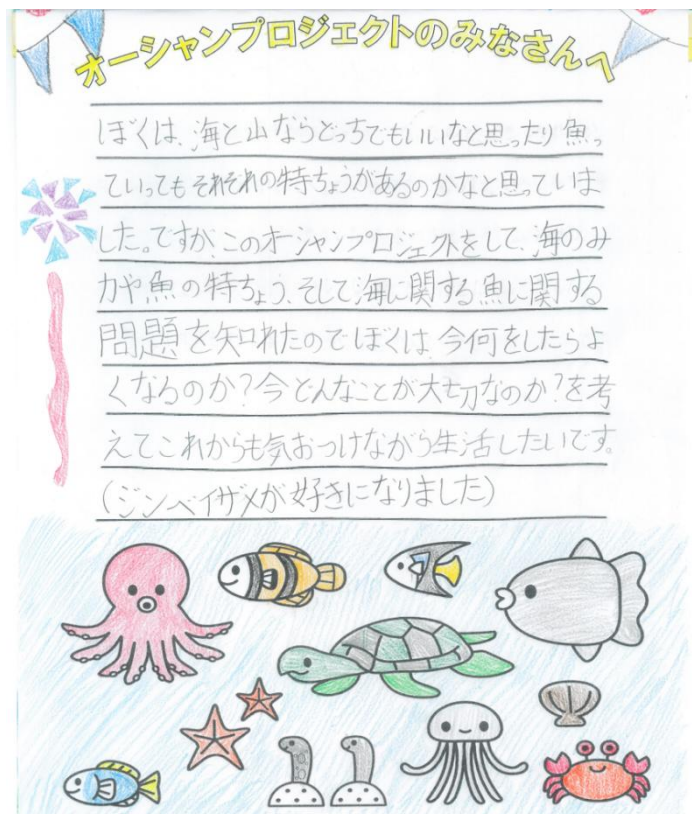 オーシャンプロジェクトのみなさんへ
ぼくは、海と山ならどっちでもいいなと思ったり魚っ
ていってもそれぞれの特ちょうがあるのかなと思っていま
した。ですが、このオーシャンプロジェクトをして、海のみ
力や魚の特ちょう、そして海に関する魚に関する
問題を知れたのでぼくは、今何をしたらよ
くなるのか?今どんなことが大切なのか?を考
えてこれからも気おつけながら生活したいです。
(ジンベイザメが好きになりました)